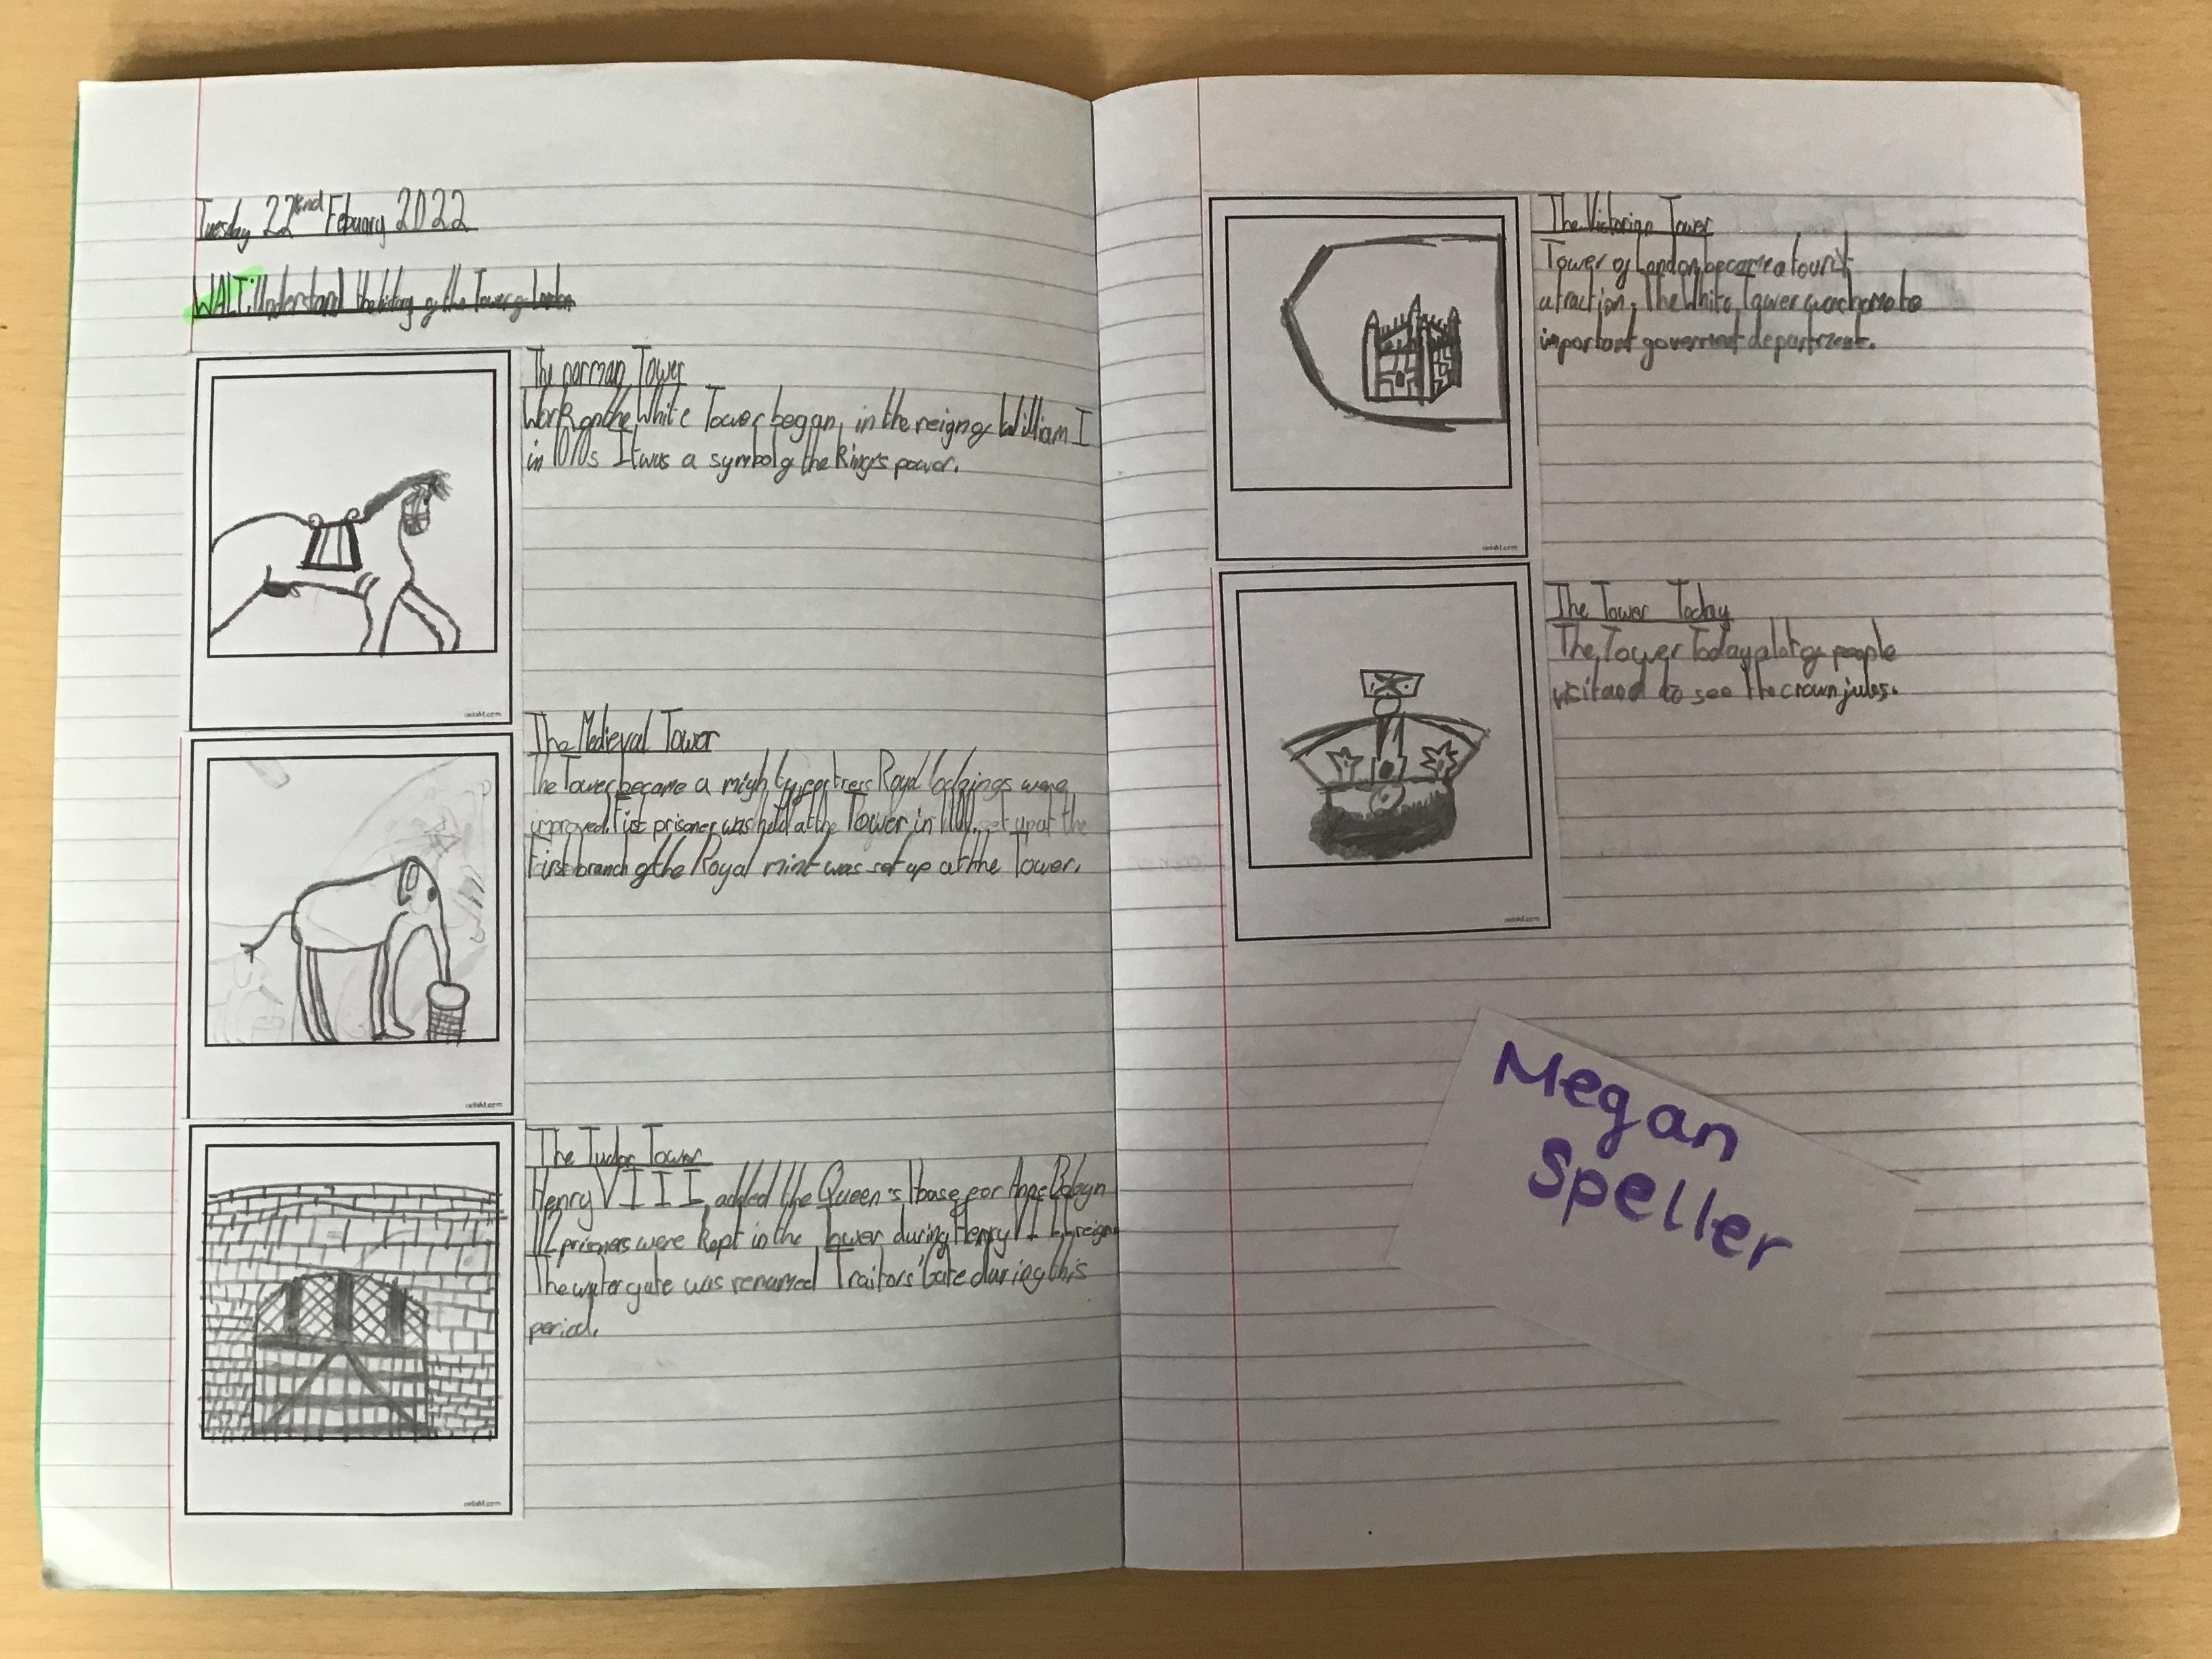 Tuesday 22nd Febuary 2022
WALT: Understand the history of the Tower of London
The norman Tower
Work on the White Tower began, in the reign of William I
in 1070s It was a symbol of the King's power.
twinkl.com
The Medieval Tower
The Tower became a mighty fortress Royal lodgings were
improved. First prisoner was held at the Tower in set up at the
First branch of the Royal mint was set up at the Tower.
twinkl.com
The Tudor Tower
Henry VIII, added the Queen's House for Anne Boleyn
112 prisoners were kept in the Tower during Henry reign
The water gate was renamed Traitors' Gate during this
period.
twinkl.com
The Victorian Tower
Tower of London became a tourist
atraction. The White Tower was home to
important goverment department.
twinkl.com
The Tower Today
The Tower Today a lot of people
visit and to see the crown jules.
twinkl.com
Megan
Speller